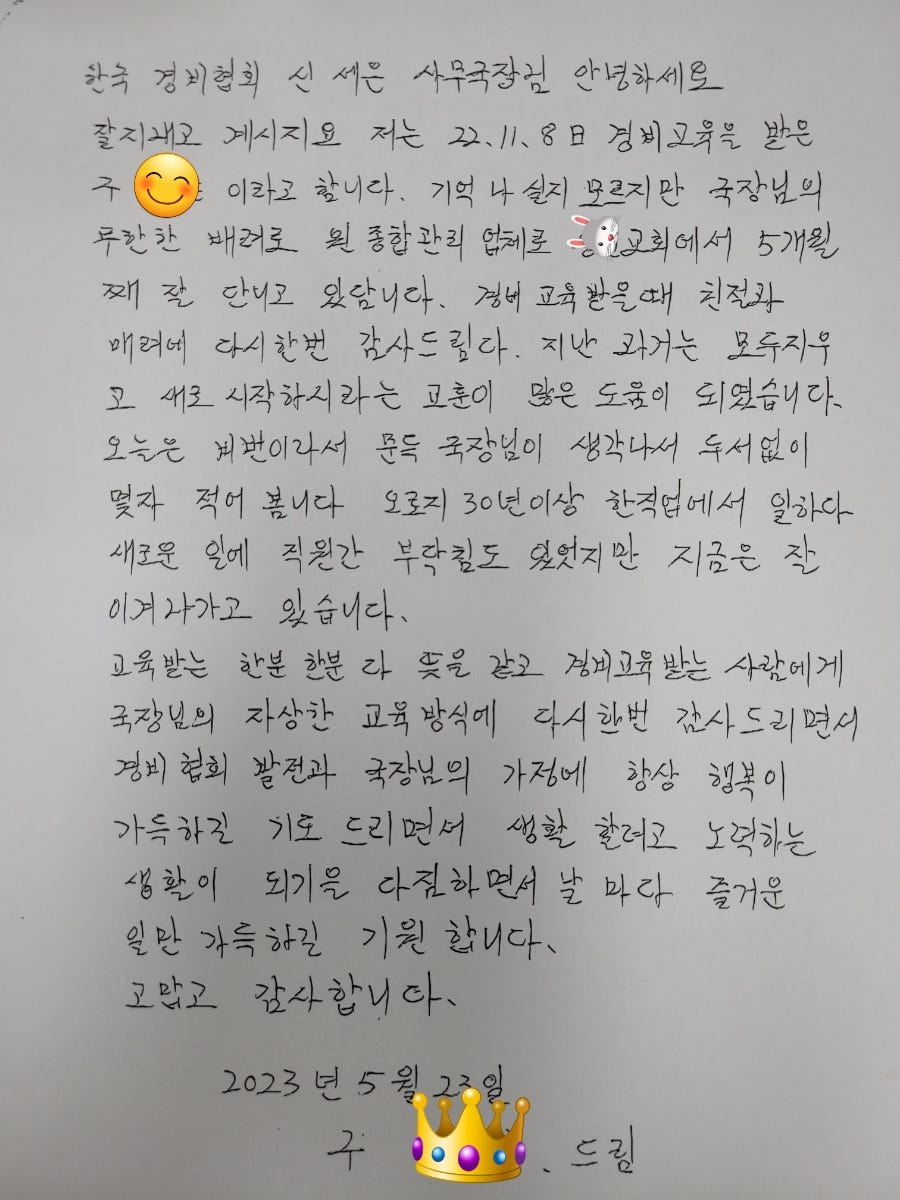 한국 경비협회 신 세은 사무국장님 안녕하세요
잘지내고 계시지요 저는 22.11.8日 경비교육을 받은
구 이라고 합니다. 기억 나 실지 모르지만 국장님의
무한한 배려로 원 종합관리 업체로 교회에서 5개월
째 잘 단니고 있답니다. 경비 교육받을때 친절과
배려에 다시한번 감사드림다. 지난 과거는 모두지우
고 새로 시작하시라는 교훈이 많은 도움이 되였습니다.
오늘은 비번이라서 문득 국장님이 생각나서 두서없이
몇자 적어 봄니다 오로지 30년이상 한직업에서 일하다
새로운 일에 직원간 부닥침도 있었지만 지금은 잘
이겨나가고 있습니다.
교육받는 한분 한분 다 뜻을 같고 경비교육받는 사람에게
국장님의 자상한 교육방식에 다시한번 감사드리면서
경비협회 발전과 국장님의 가정에 항상 행복이
가득하길 기도 드리면서 생활 할려고 노력하는
생활이 되기을 다짐하면서 날 마다 즐거운
일만 가득하길 기원 합니다.
고맙고 감사합니다.
2023년 5월 23일
구 . 드림